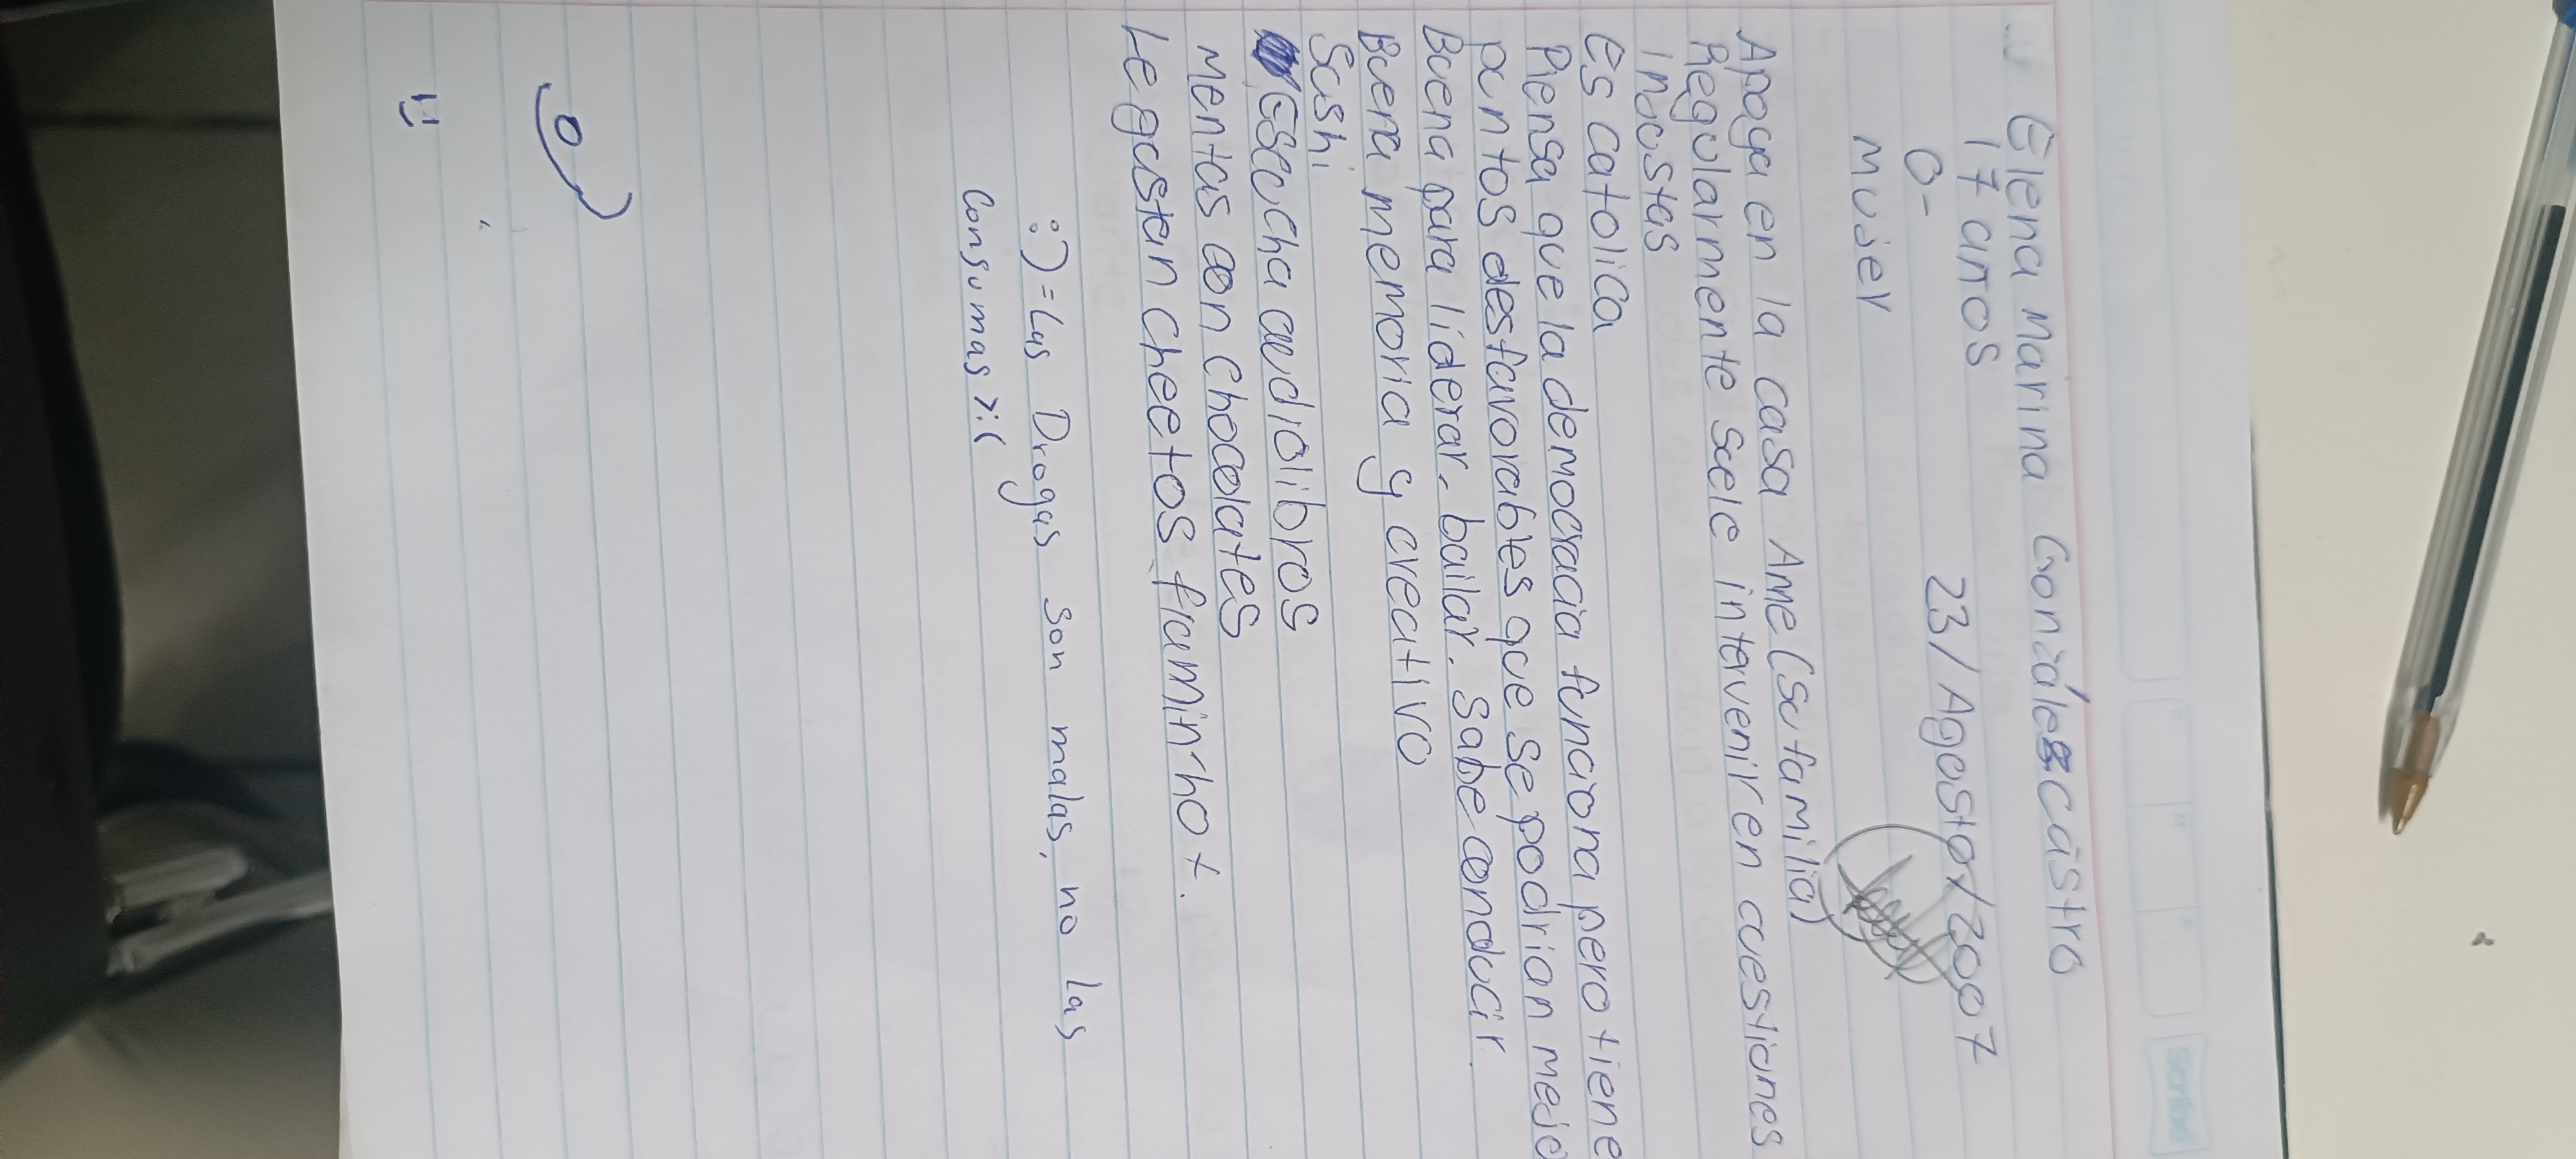 Elena Marina González Castro
17 años
23/Agosto/2007
O-
Mujer
Apoya en la casa Ame (su familia)
Regularmente suele intervenir en cuestiones
incostas
Es catolica
Piensa que la democracia funciona pero tiene
puntos desfavorables que se podrian mejo
Buena para líderar, bailar. Sabe conducir.
Buena memoria y creativo
Sushi
Escucha audiolibros
Mentas con chocolates
Le gustan cheetos flamin hot.
:) = Las Drogas son malas, no las
Consumas >:(
:)
Scribe